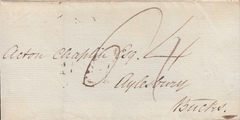 Acton Chaplin Esq.
Aylesbury
Bucks.